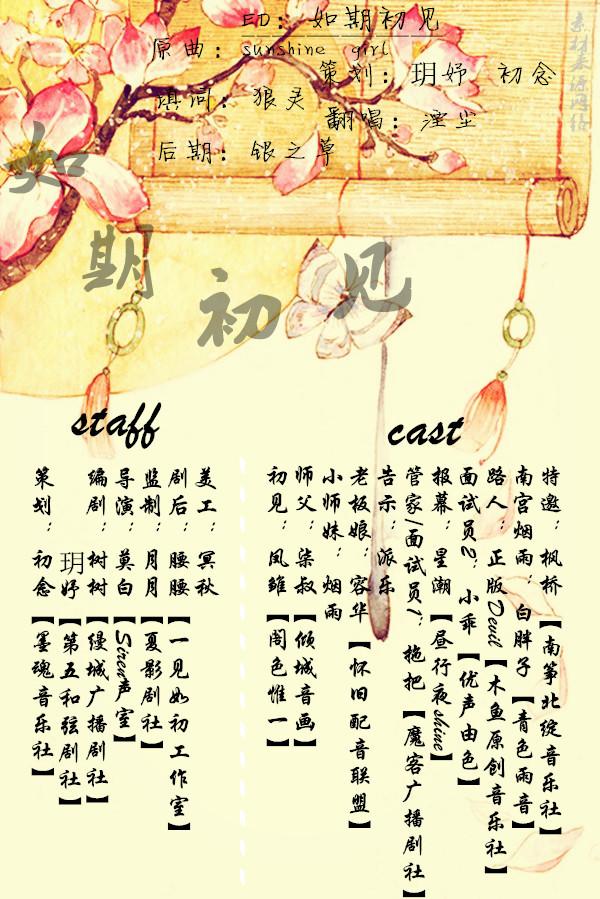 ED：如期初见
原曲：sunshine girl
策划：玥妤 初念
填词：狠灵
翻唱：湮尘
后期：银之草
素材来源网络
如期初见
staff
策划：初念【墨魂音乐社】
玥妤【第五和弦剧社】
编剧：树树【缦城广播剧社】
导演：莫白【Siren声室】
监制：月月【夏影剧社】
剧后：腰腰【一见如初工作室】
美工：冥秋
cast
初见：凤雏【阁色惟一】
师父：柒叔【倾城音画】
小师妹：烟雨
老板娘：容华【怀旧配音联盟】
告示：派乐
管家/面试员1：拖把【魔客广播剧社】
报幕：星潮【昼行夜shine】
面试员2：小乖【优声由色】
路人：正版Devil【木鱼原创音乐社】
南宫烟雨：白胖子【青色雨音】
特邀：枫桥【南筝北绽音乐社】